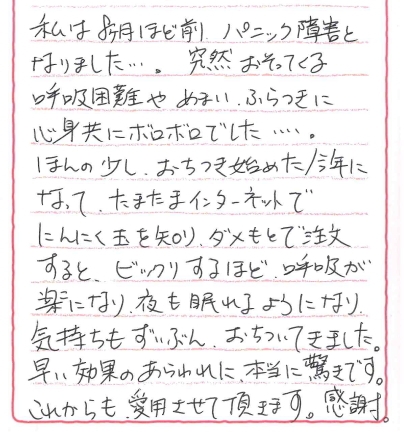 私は8ヶ月ほど前、パニック障害と
なりました…。突然おそってくる
呼吸困難や めまい、ふらつきに
心身共にボロボロでした….。
ほんの少し、おちつき始めた今年に
なって、たまたまインターネットで
にんにく玉を知り、ダメもとで注文
すると、ビックリするほど、呼吸が
楽になり、夜も眠れるようになり、
気持ちもずいぶん、おちついてきました。
早い効果のあらわれに、本当に驚きです。
これからも、愛用させて頂きます。感謝。